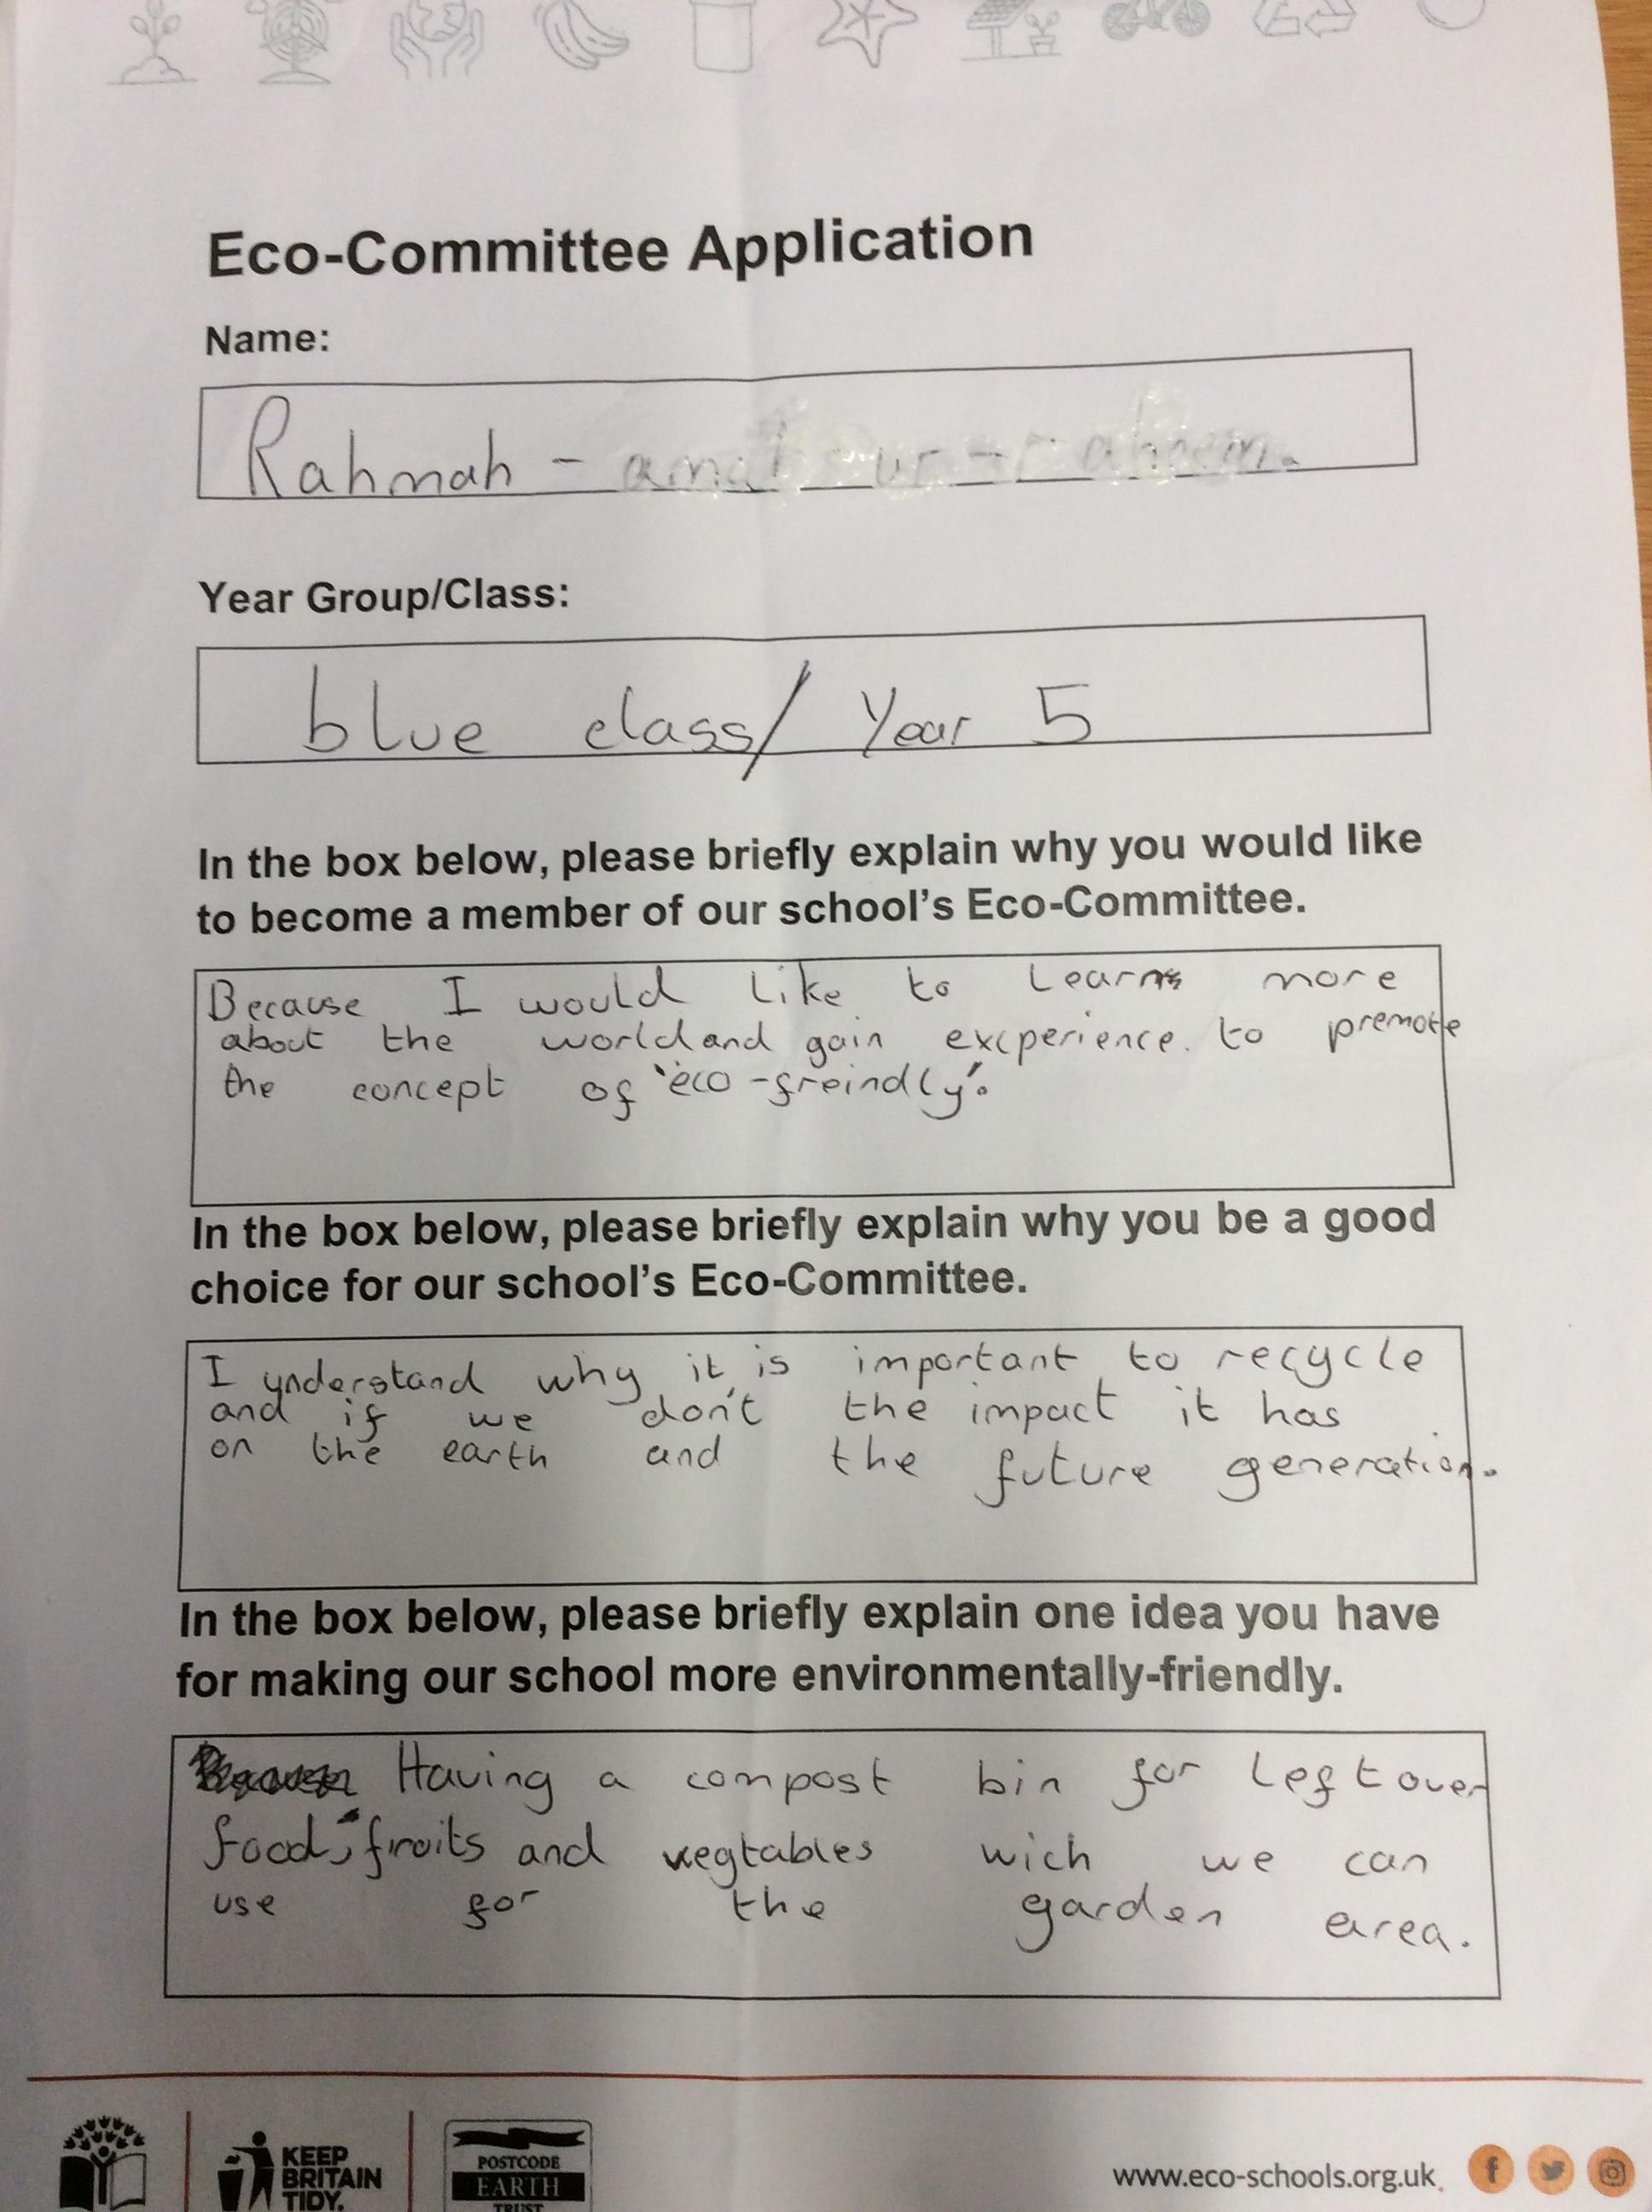 Eco-Committee Application
Name:
Rahmah -
Year Group/Class:
blue class/ Year 5
In the box below, please briefly explain why you would like
to become a member of our school's Eco-Committee.
Because I would like to learn more
about the world and gain excperience. to premote
the concept of 'eco-freindly'.
In the box below, please briefly explain why you be a good
choice for our school's Eco-Committee.
I understand why it is important to recycle
and if we don't the impact it has
on the earth and the future generation.
In the box below, please briefly explain one idea you have
for making our school more environmentally-friendly.
Having a compost bin for leftover
food, fruits and vegtables wich we can
use for the garden area.
KEEP
BRITAIN
TIDY.
POSTCODE
EARTH
TRUST
www.eco-schools.org.uk